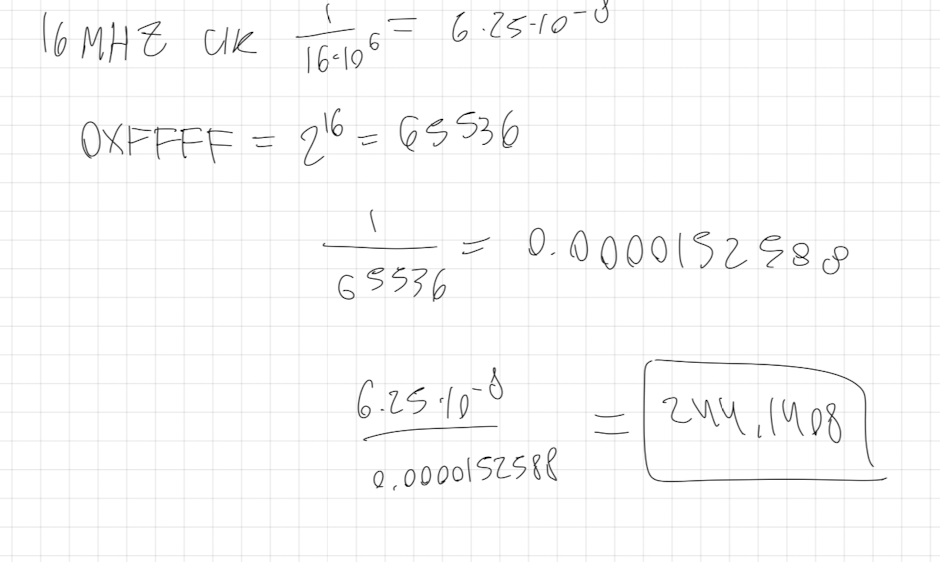 16 MHZ clk 1/16·10^6 = 6.25·10^-8
0XFFFF = 2^16 = 65536
1/65536 = 0.0000152588
6.25·10^-8/0.0000152588 = 244,1408